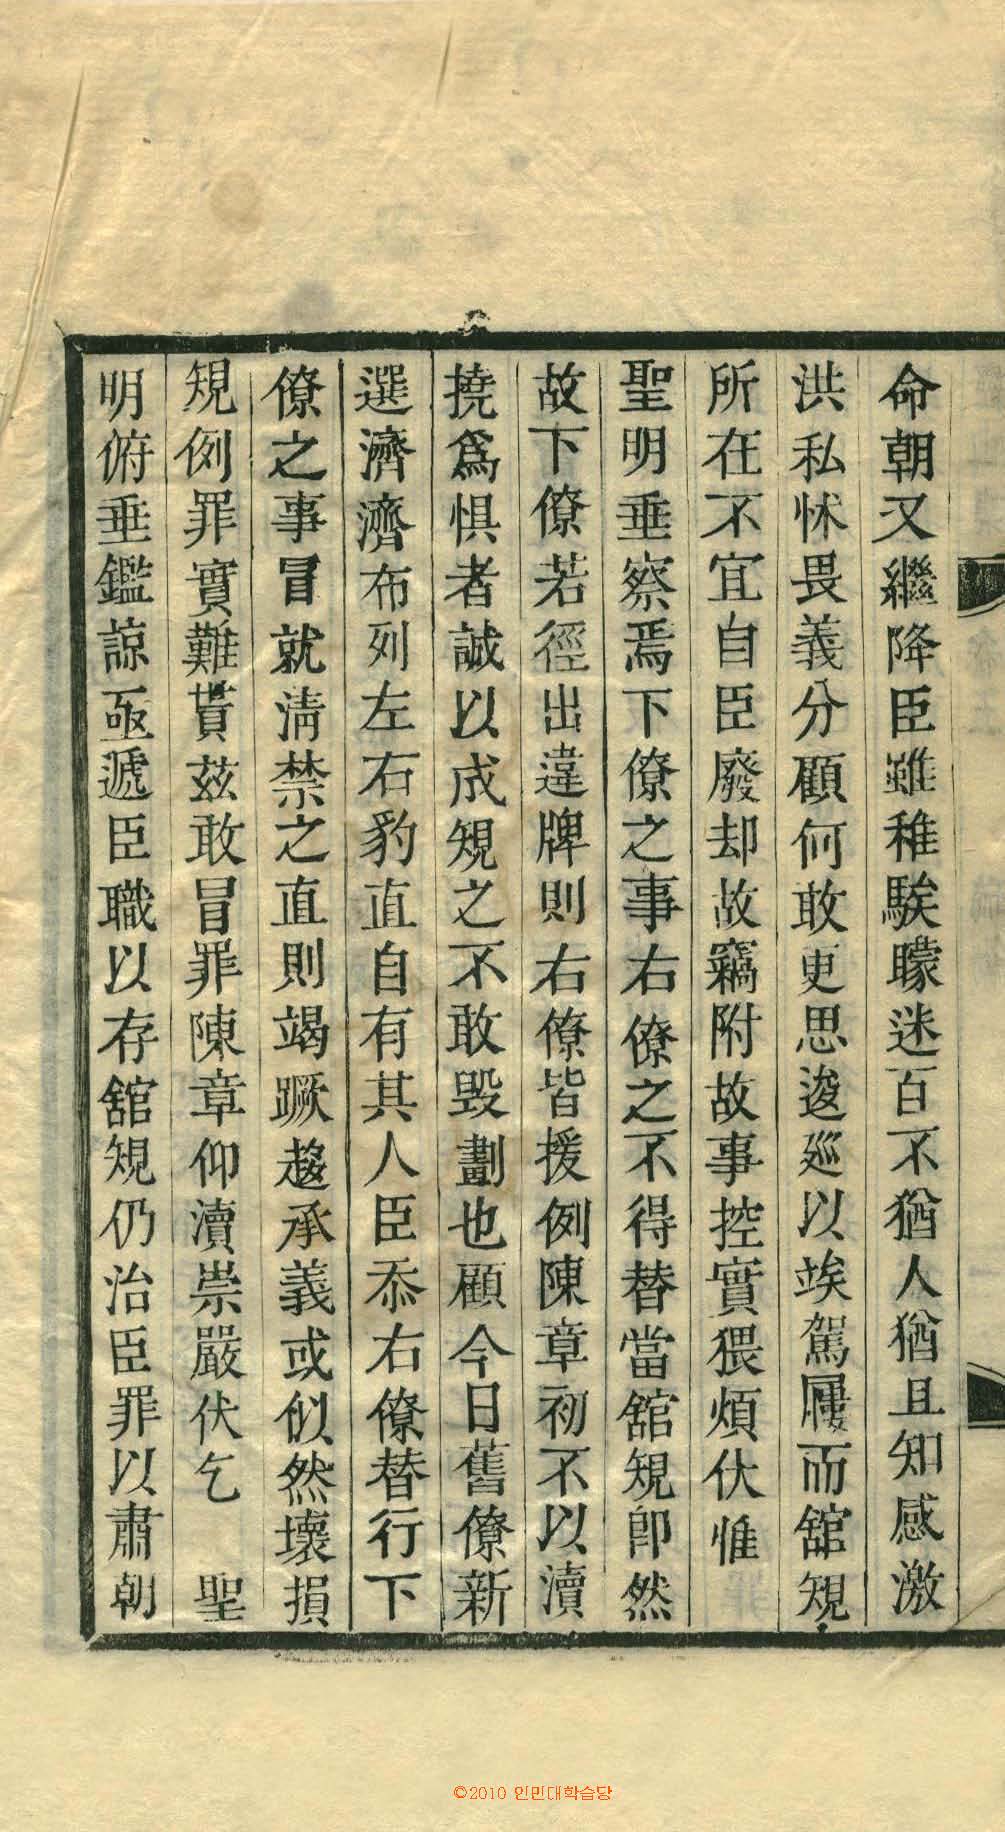 命朝又繼降臣雖稚騃矇迷百不猶人猶且知感激
洪私怵畏義分顧何敢更思逡巡以竢駕屨而舘規
所在不宜自臣廢却故竊附故事控實猥煩伏惟
聖明垂察焉下僚之事右僚之不得替當舘規卽然
故下僚若徑出違牌則右僚皆援例陳章初不以瀆
撓爲惧者誠以成規之不敢毁劃也顧今日舊僚新
選濟濟布列左右豹直自有其人臣忝右僚替行下
僚之事冒就淸禁之直則竭蹶趍承義或似然壞損
規例罪實難貰玆敢冒罪陳章仰瀆崇嚴伏乞 聖
明俯垂鑑諒亟遞臣職以存舘規仍治臣罪以肅朝
©2010 인민대학습당